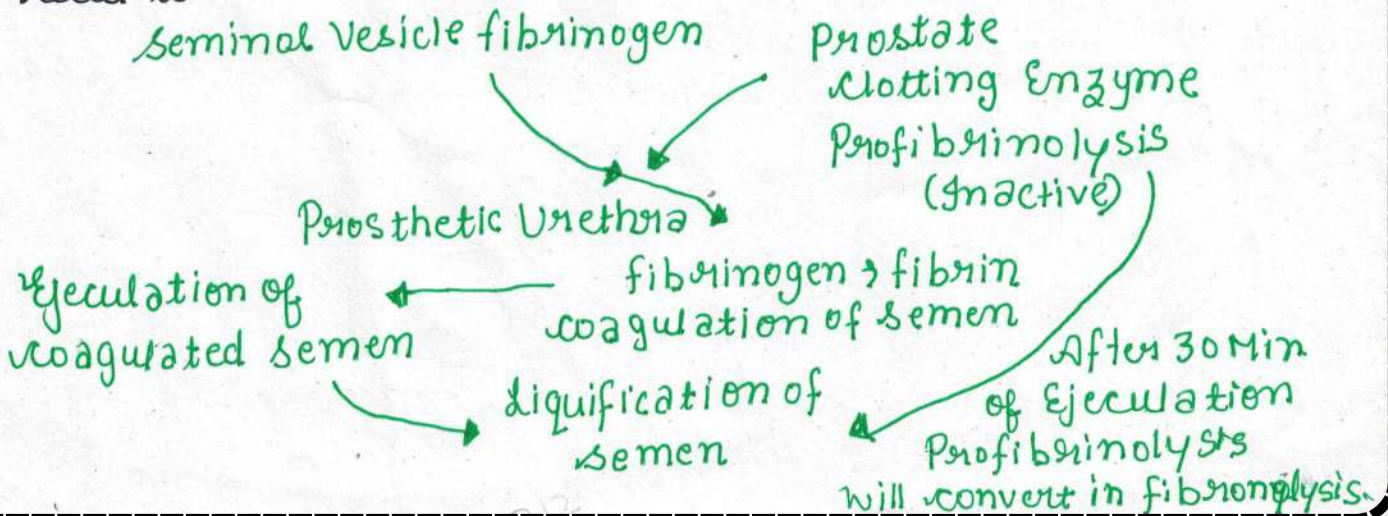 Seminal Vesicle fibrinogen
Prostate
Clotting Enzyme
Profibrinolysis
(Inactive)
Prosthetic Urethra
fibrinogen → fibrin
coagulation of semen
Ejeculation of
coagulated semen
Liquification of
semen
After 30 Min
of Ejeculation
Profibrinolysis
will convert in fibronolysis.